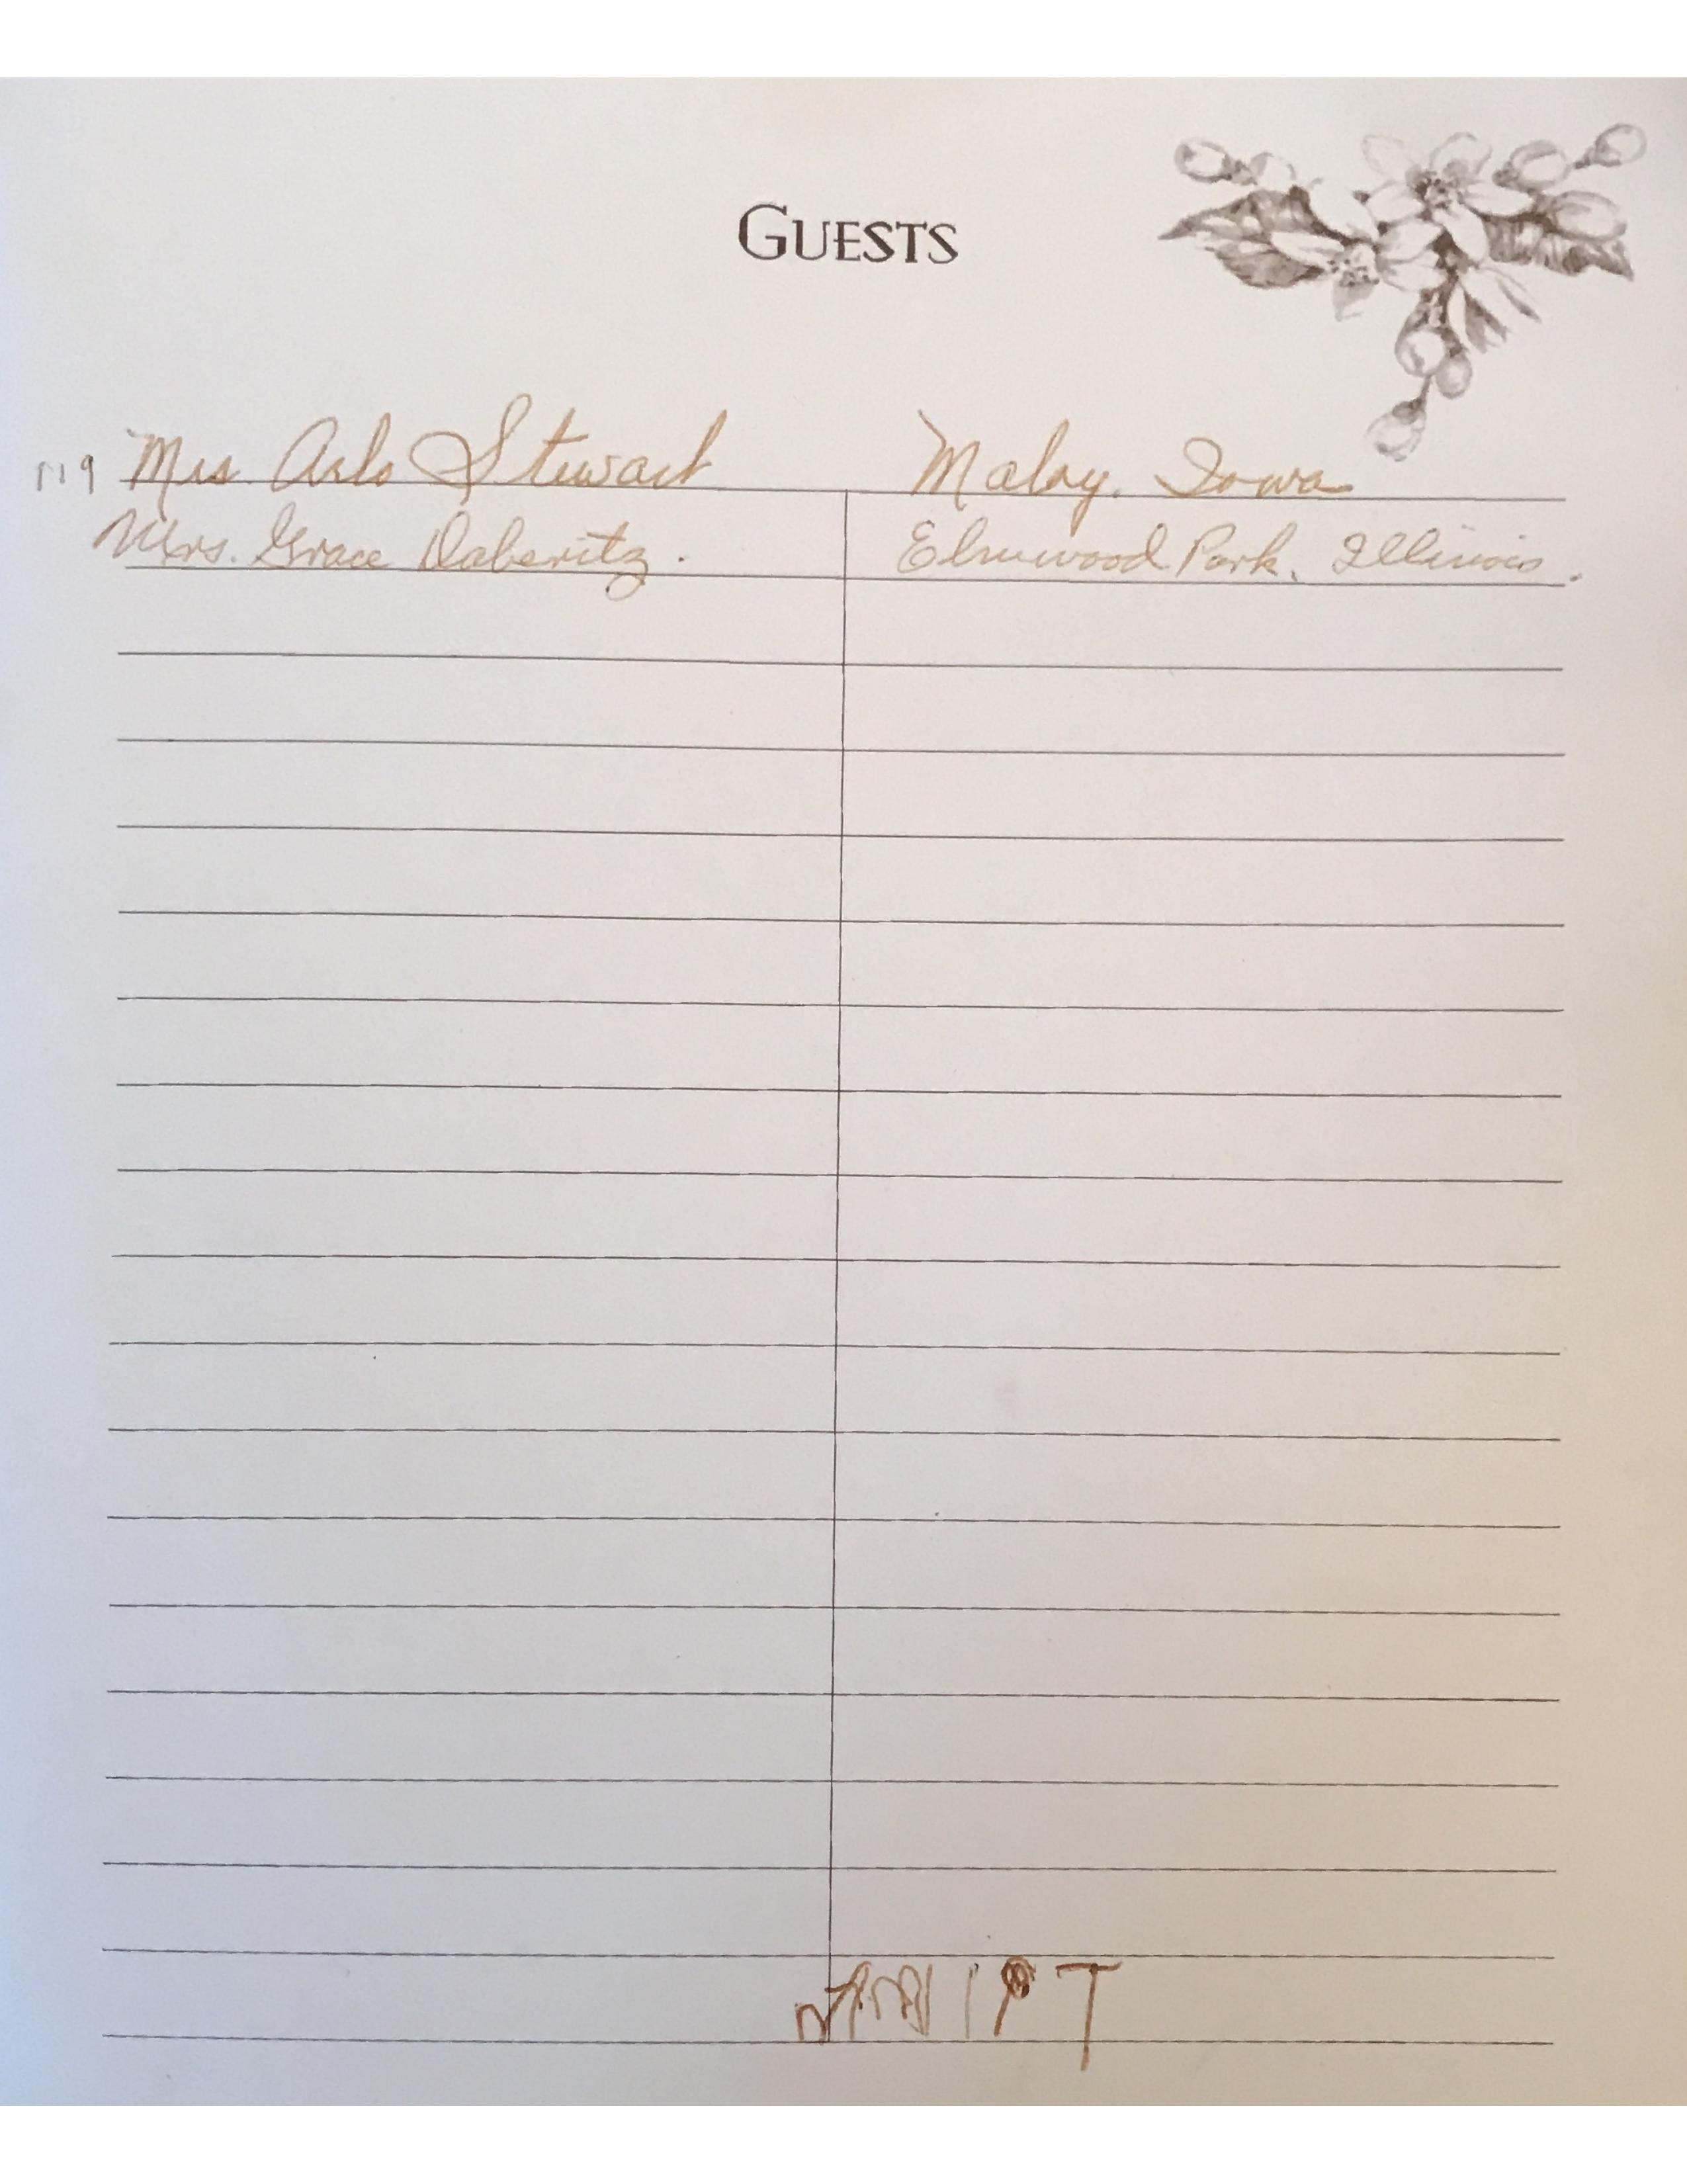 GUESTS
Mrs Arlo Stewart Maloy, Iowa
Mrs. Grace Daberitz. Elmwood Park, Illinois.